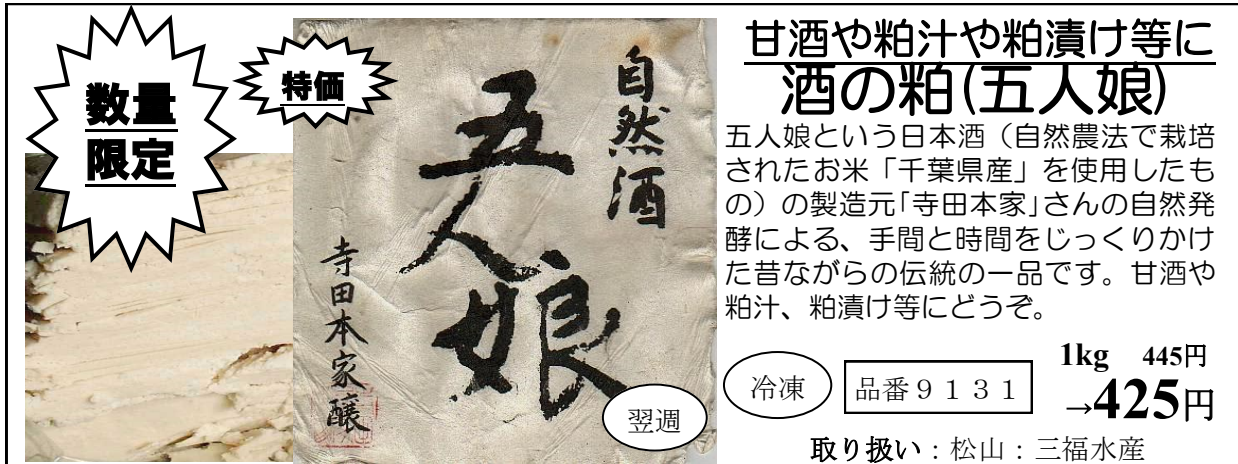 数量
限定
特価
自然酒
五人娘
寺田本家醸
翌週
甘酒や粕汁や粕漬け等に
酒の粕(五人娘)
五人娘という日本酒（自然農法で栽培
されたお米「千葉県産」を使用したも
の）の製造元「寺田本家」さんの自然発
酵による、手間と時間をじっくりかけ
た昔ながらの伝統の一品です。甘酒や
粕汁、粕漬け等にどうぞ。
冷凍
品番９１３１
1kg 445円
→425円
取り扱い：松山：三福水産